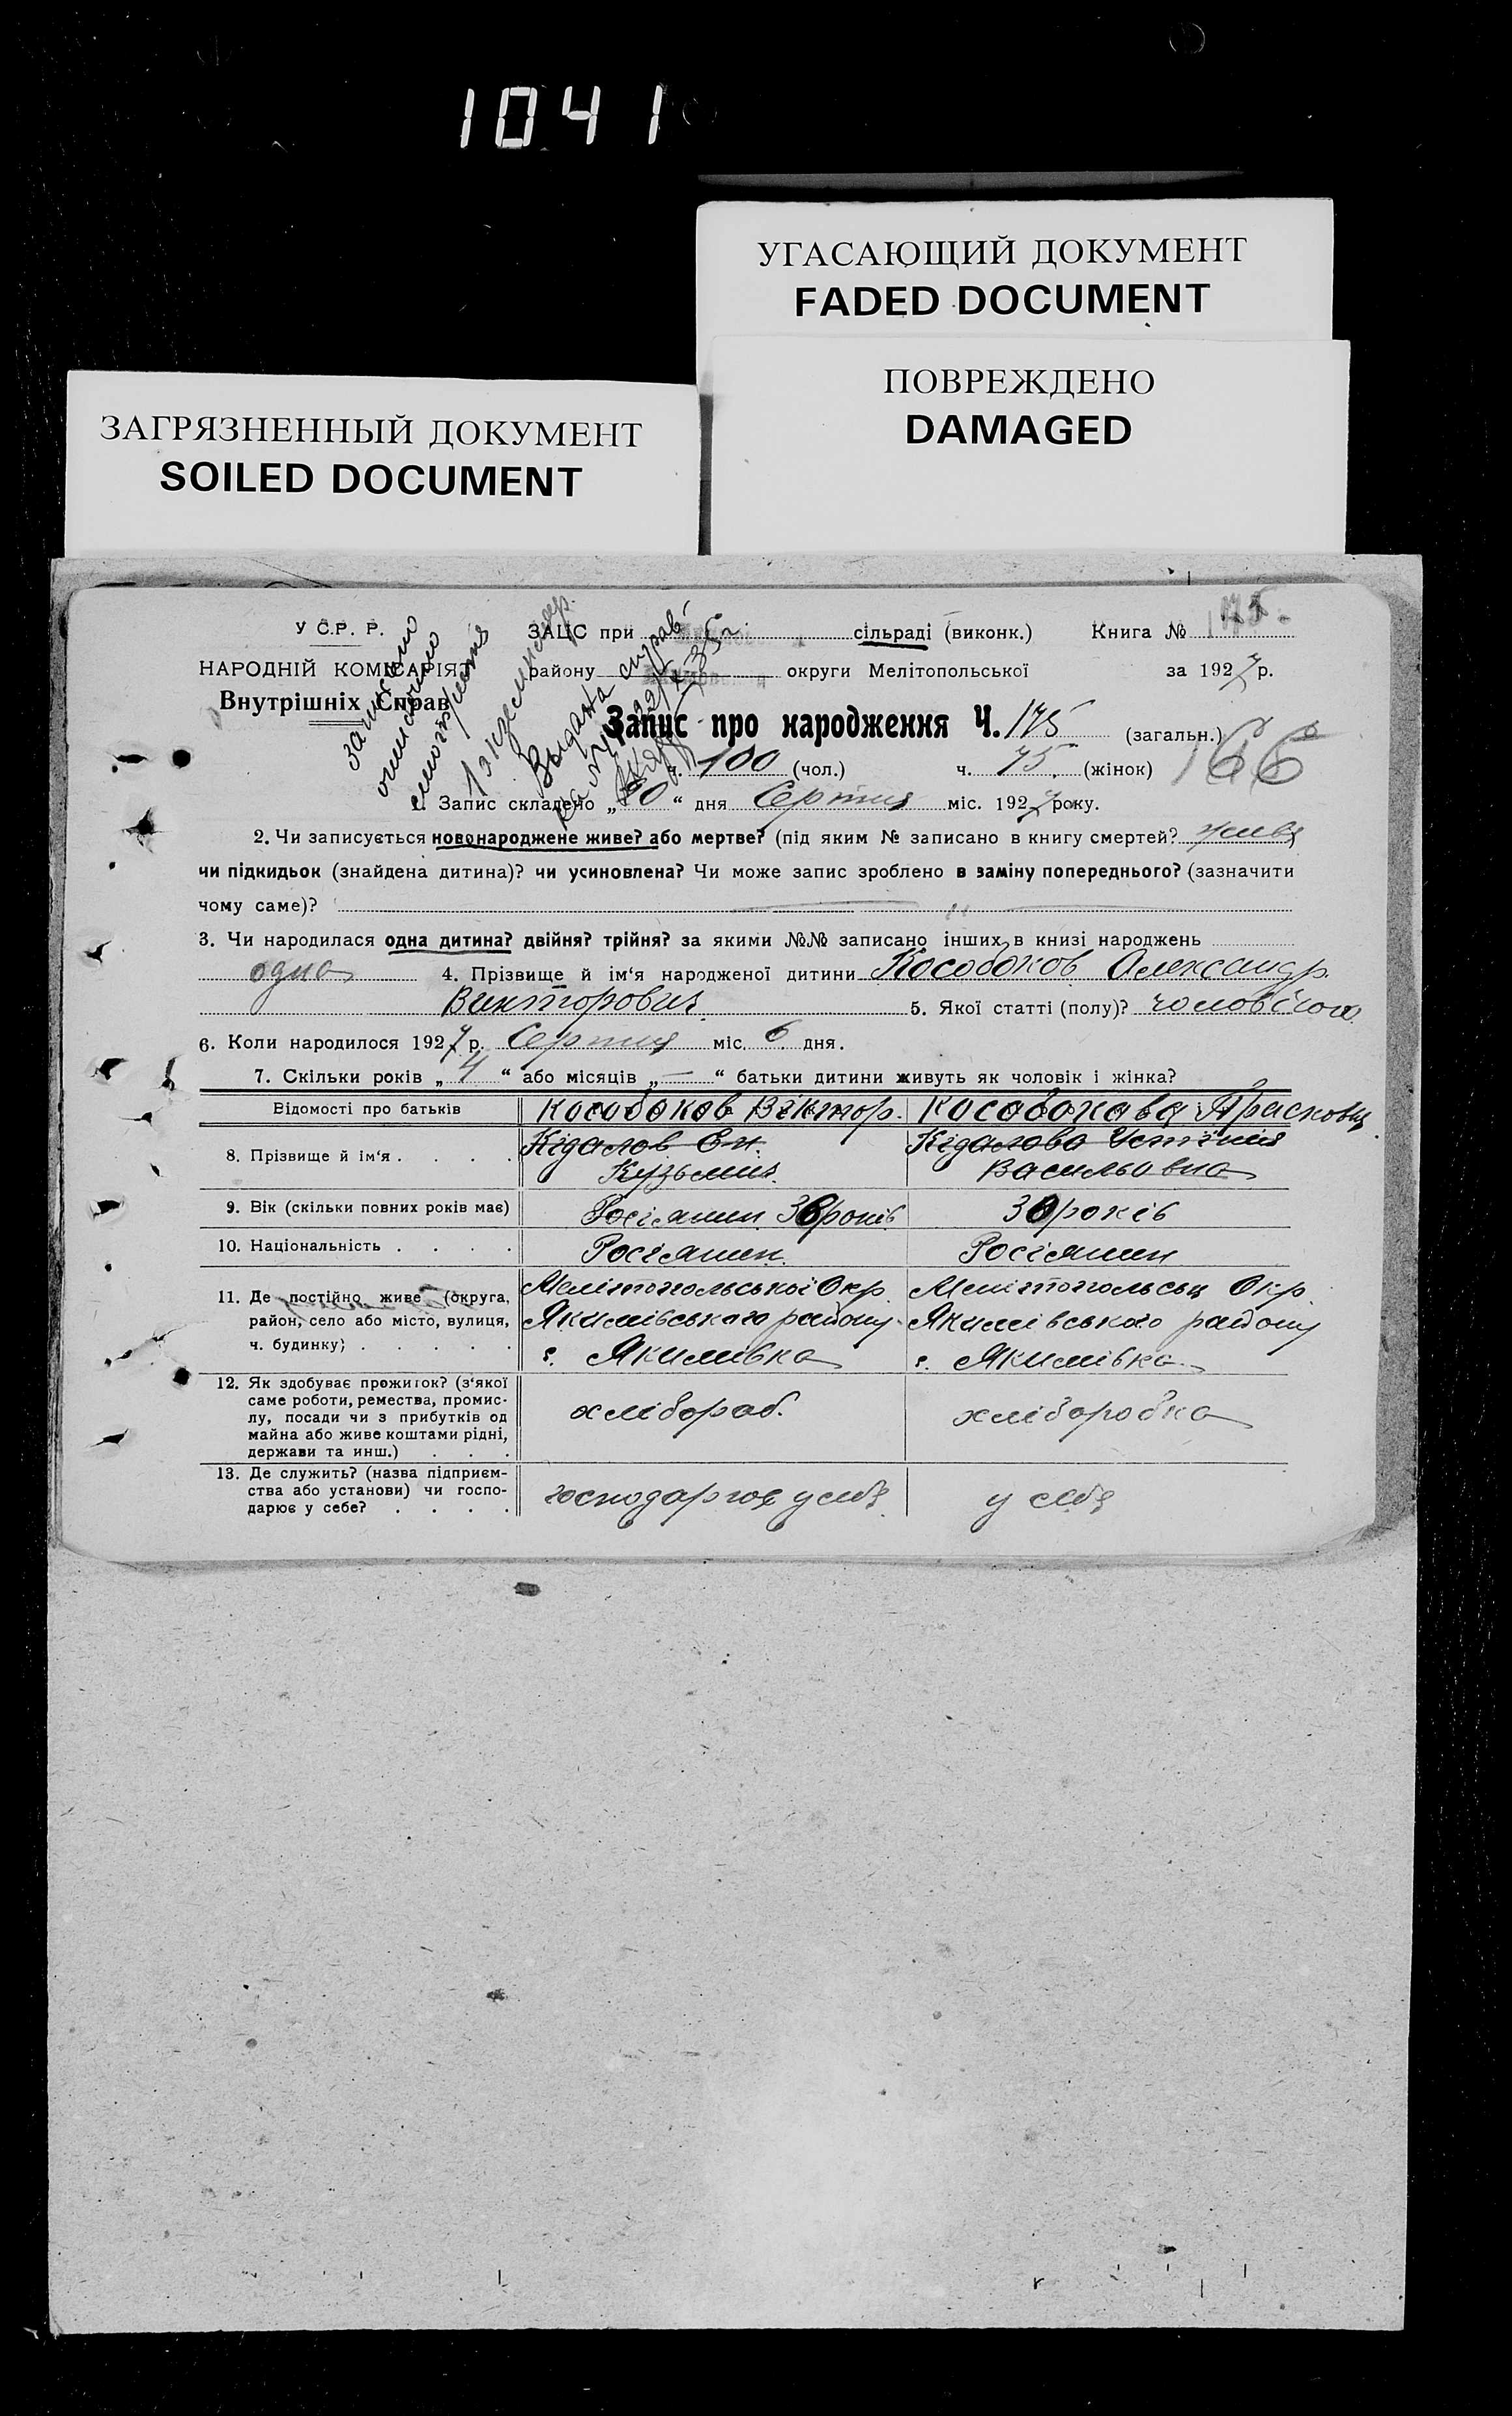 1041
УГАСАЮЩИЙ ДОКУМЕНТ
FADED DOCUMENT
ПОВРЕЖДЕНО
DAMAGED
ЗАГРЯЗНЕННЫЙ ДОКУМЕНТ
SOILED DOCUMENT
У С.Р. Р.
НАРОДНІЙ КОМІСАРІЯТ
Внутрішніх Справ
ЗАЦС при сільраді (виконк.) Книга № 175
району округи Мелітопольської за 1927 р.
Запис про народження Ч. 175 (загальн.)
ч. 100 (чол.) ч. 75 (жінок) 166
1. Запис складено „20“ дня Серпня міс. 1927 року.
2. Чи записується новонароджене живе? або мертве? (під яким № записано в книгу смертей? живе
чи підкидьок (знайдена дитина)? чи усиновлена? Чи може запис зроблено в заміну попереднього? (зазначити
чому саме)?
3. Чи народилася одна дитина? двійня? трійня? за якими №№ записано інших в книзі народжень
одна 4. Прізвище й ім‘я народженої дитини Кособоков Александр
Викторович 5. Якої статті (полу)? чоловічого
6. Коли народилося 1927 р. Серпня міс. 6 дня.
7. Скільки років „4“ або місяців „—“ батьки дитини живуть як чоловік і жінка?
Відомості про батьків Кособоков Віктор. Кособокова Прасковия
8. Прізвище й ім‘я . . . . Кідалов Ем. Кідалова Устінія
Кузьмич. Васильовна
9. Вік (скільки повних років має) Росіянин 36 років 30 років
10. Національність . . . . Росіянин. Росіянин
11. Де постійно живе (округа, Мелітопольської Окр. Мелітопольськ Окр.
район, село або місто, вулиця, Якимівського району Якимівського району
ч. будинку) . . . . . с. Якимівка с. Якимівка
12. Як здобуває прожиток? (з‘якої
саме роботи, ремества, промис-
лу, посади чи з прибутків од хлібороб. хліборобка
майна або живе коштами рідні,
держави та инш.) . . .
13. Де служить? (назва підприєм-
ства або установи) чи госпо- господарює у себе у себе
дарює у себе? . . . .